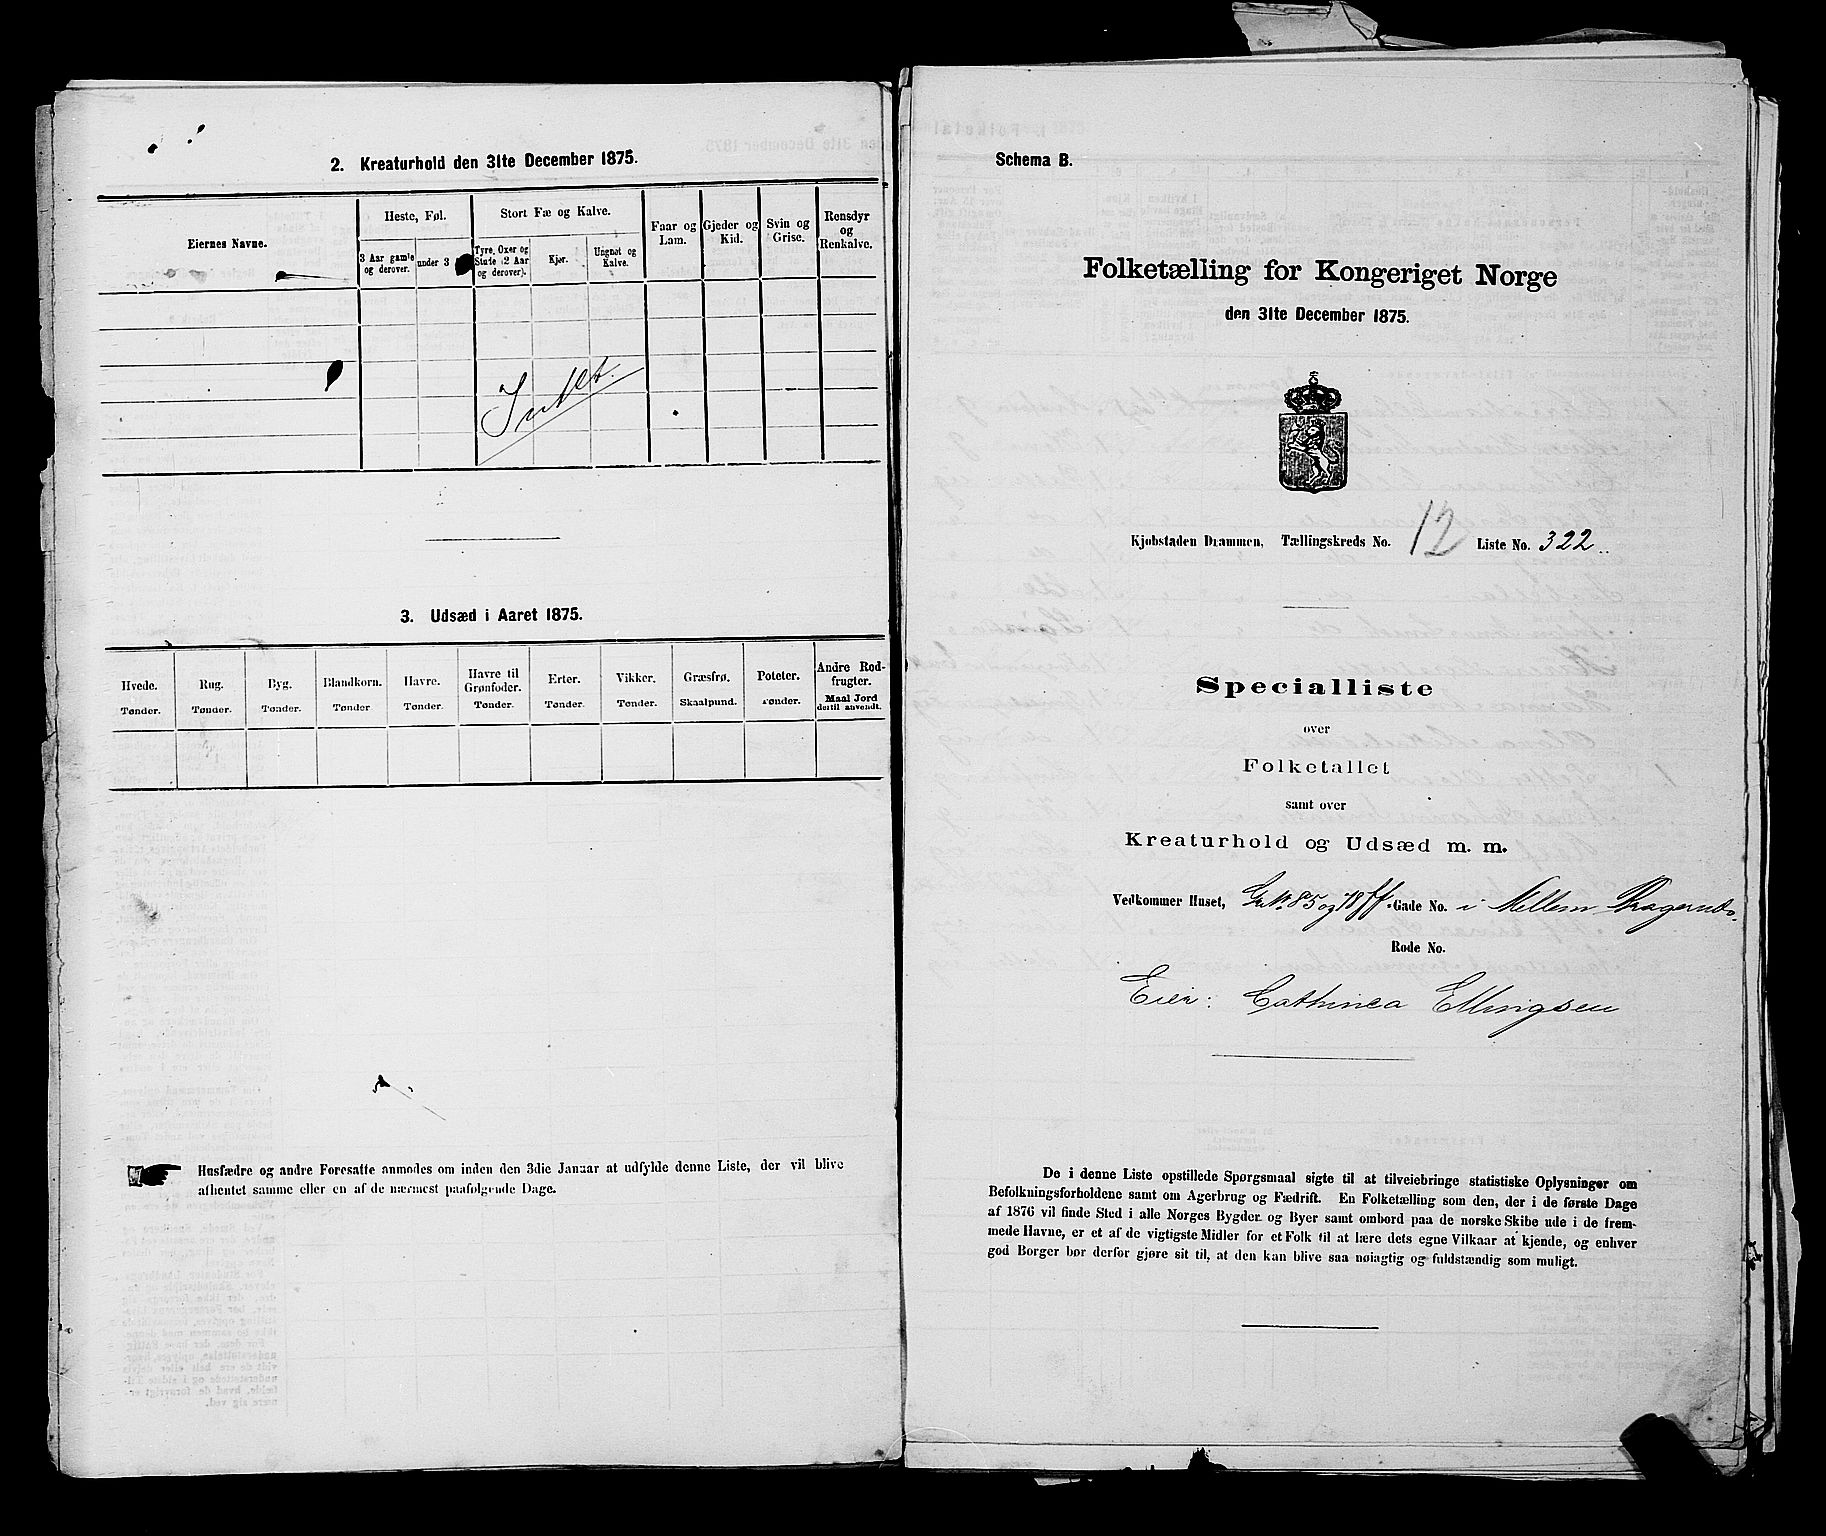 2. Kreaturhold den 31te December 1875.
Eiernes Navne.
Heste, Føl.
Stort Fæ og Kalve.
Faar og
Lam.
Gjeder og
Kid.
Svin og
Grise.
Rensdyr
og
Renkalve.
3 Aar gamle
og derover.
under 3
Tyre, Oxer og
Stude (2 Aar
og derover).
Kjør.
Ungnøt og
Kalve.
Intet.
3. Udsæd i Aaret 1875.
Hvede.
Tønder.
Rug.
Tønder.
Byg.
Tønder.
Blandkorn.
Tønder
Havre.
Tønder.
Havre til
Grønfoder.
Tønder.
Erter.
Tønder.
Vikker.
Tønder.
Græsfrø.
Skaalpund.
Poteter.
Tønder.
Andre Rod-
frugter.
Maal Jord
dertil anvendt.
Husfædre og andre Foresatte anmodes om inden den 3die Januar at udfylde denne Liste, der vil blive
afhentet samme eller en af de nærmest paafølgende Dage.
Schema B.
Folketælling for Kongeriget Norge
den 31te December 1875.
Kjøbstaden Drammen, Tællingskreds No. 12 Liste No. 322.
Specialliste
over
Folketallet
samt over
Kreaturhold og Udsæd m. m.
Vedkommer Huset, Gr No 85 og Gade No. i Mellem Bragernes.
Rode No.
Eier: Cathinca Ellingsen
De i denne Liste opstillede Spørgsmaal sigte til at tilveiebringe statistiske Oplysninger om
Befolkningsforholdene samt om Agerbrug og Fædrift. En Folketælling som den, der i de første Dage
af 1876 vil finde Sted i alle Norges Bygder og Byer samt ombord paa de norske Skibe ude i de frem-
mede Havne, er et af de vigtigste Midler for et Folk til at lære dets egne Vilkaar at kjende, og enhver
god Borger bør derfor gjøre sit til, at den kan blive saa nøiagtig og fuldstændig som muligt.